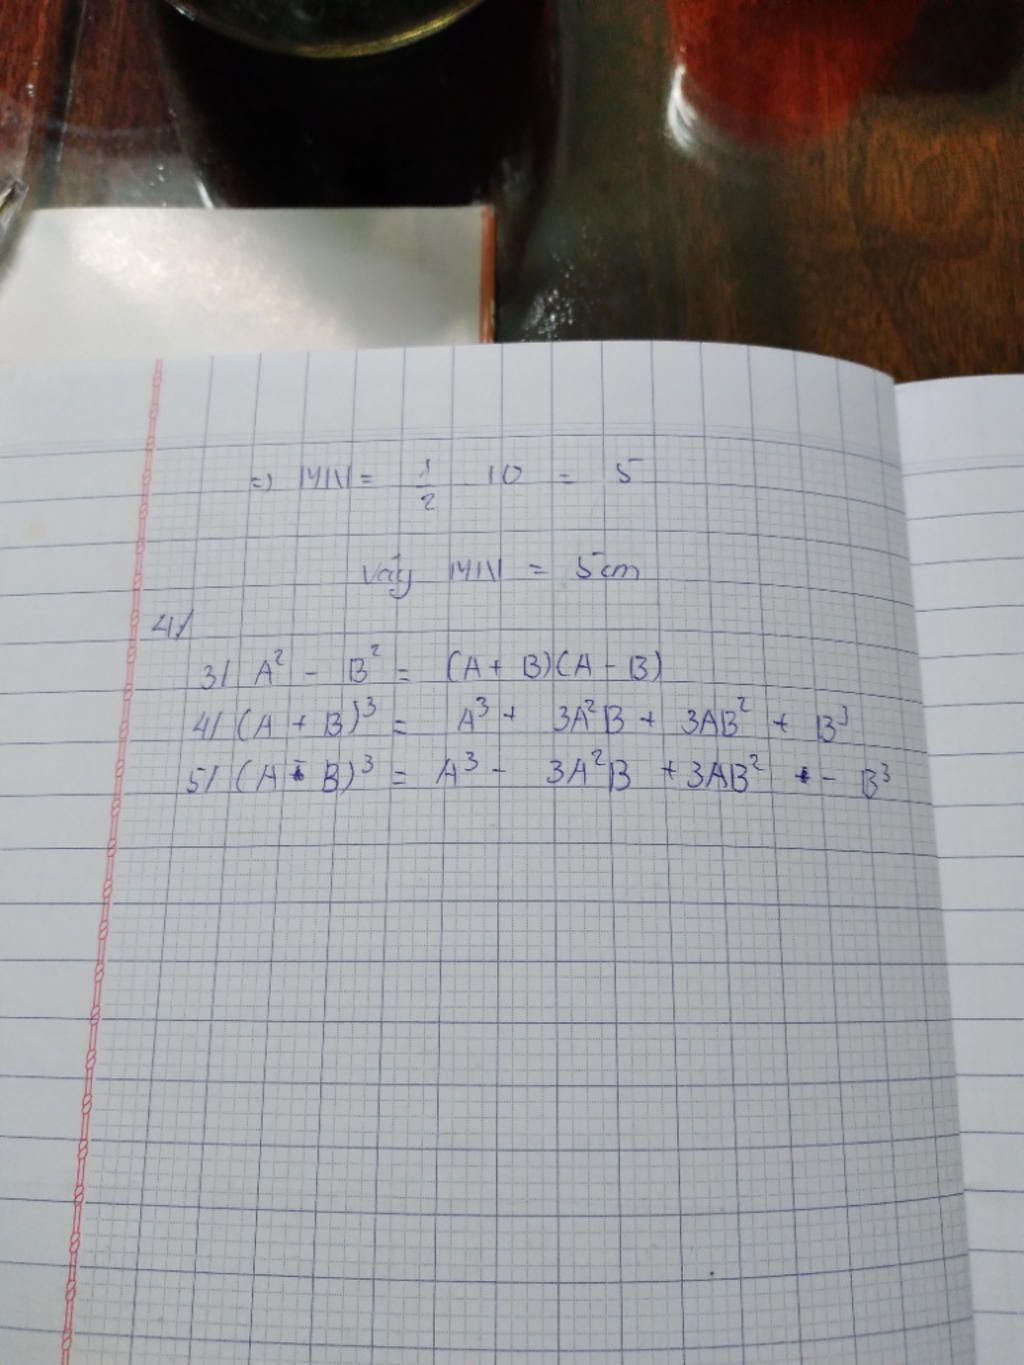 => MN = 1/2 10 = 5
Vậy MN = 5cm
4/
3/ A² - B² = (A + B)(A - B)
4/ (A + B)³ = A³ + 3A²B + 3AB² + B³
5/ (A - B)³ = A³ - 3A²B + 3AB² - B³